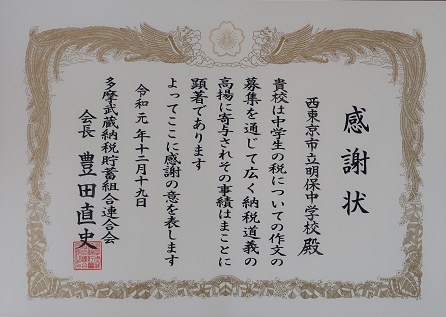 感謝状
西東京市立明保中学校殿
貴校は中学生の税についての作文の
募集を通じて広く納税道義の
高揚に寄与されその事績はまことに
顕著であります
よってここに感謝の意を表します
令和元年十二月十九日
多摩武蔵納税貯蓄組合連合会
会長 豊田直史